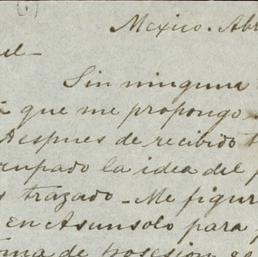 Mexico. Abr
el-
Sin ninguna
que me propongo
Despues de recibido
cupado la idea del
trazado - Me figur
en Asunsolo para
toma de posesion